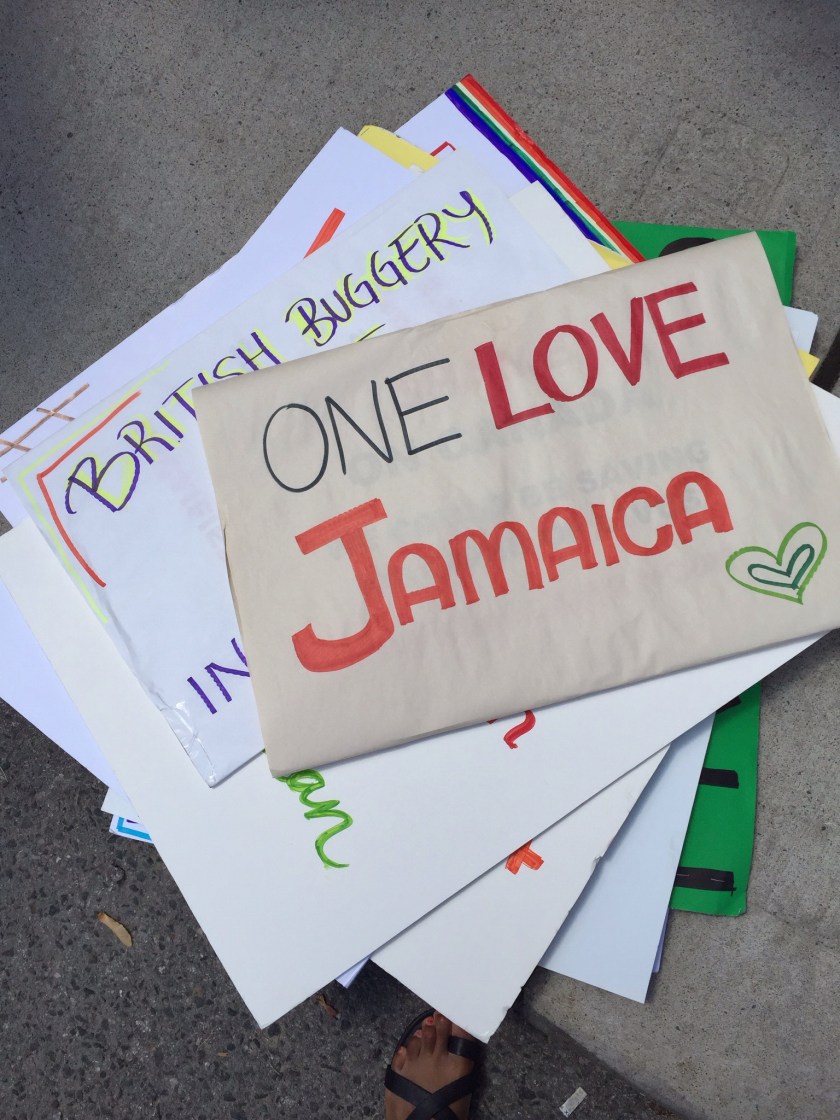 BRITISH BUGGERY
IN
ONE LOVE
JAMAICA
an